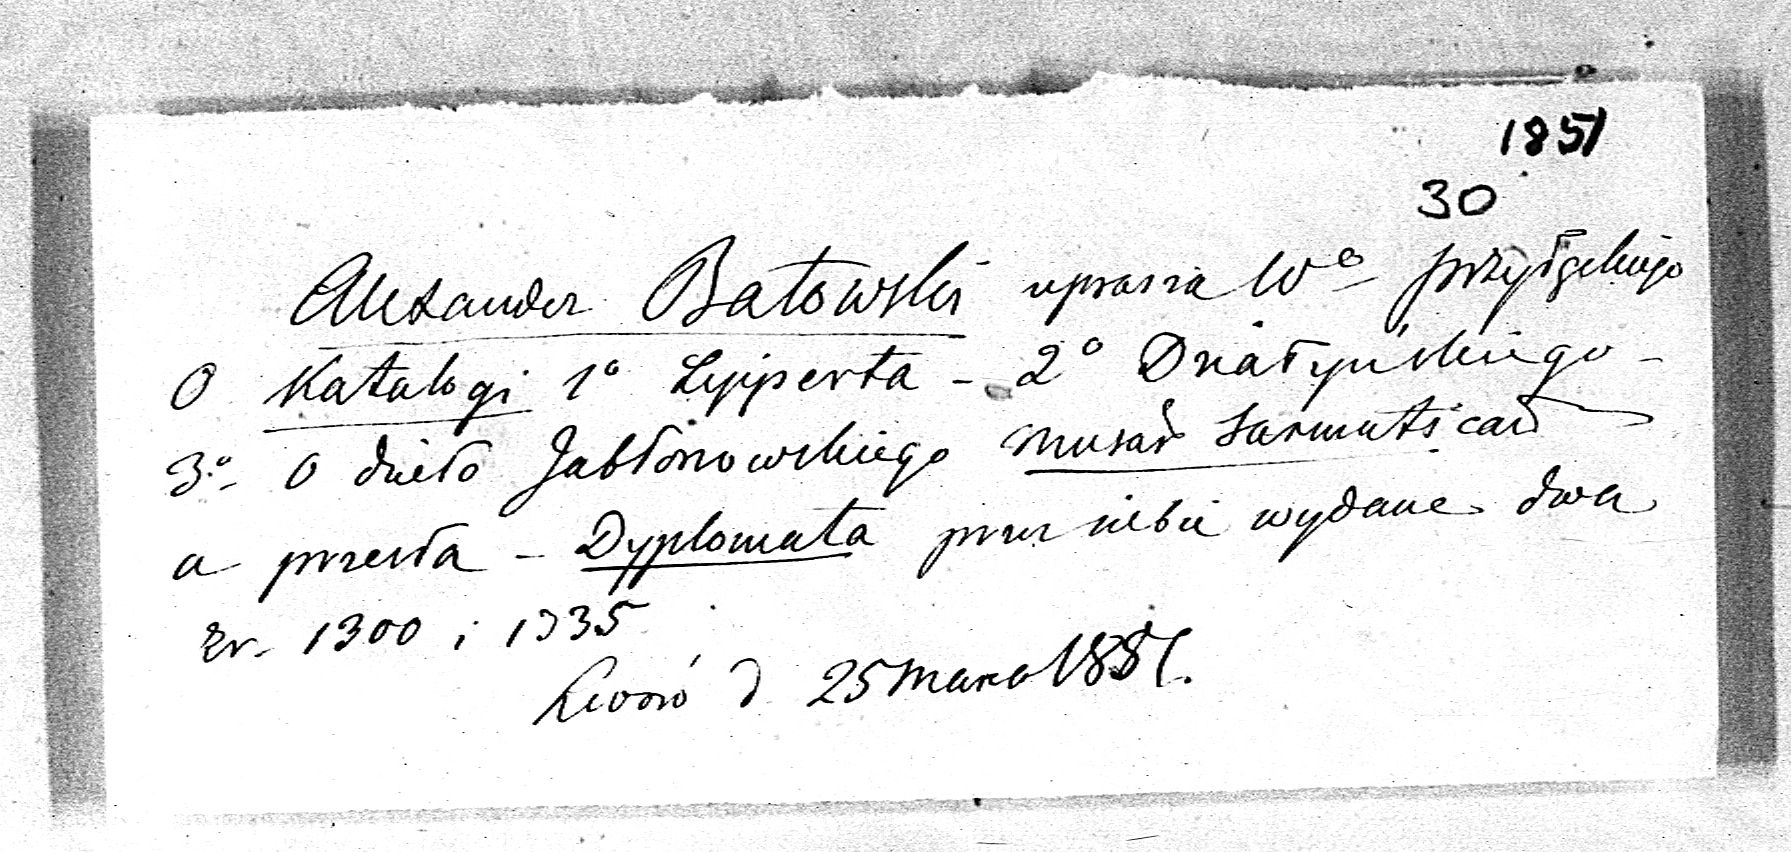 1851
30
Alexander Batowski uprasza Wo Przyłęckiego
O Katalogi 1o Lipperta - 2o Działyńskiego -
3o- O dzieło Jabłonowskiego Musae Sarmaticae
a przesła - Dyplomata przez siebie wydane dwa
zr. 1300 i 1335
Lwów d 25 Marca 1851.